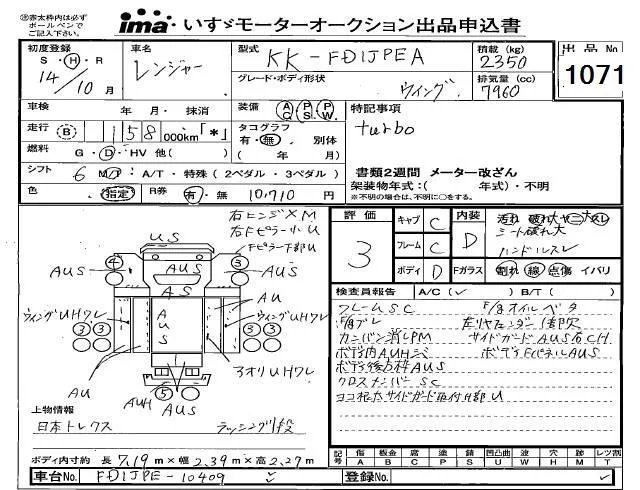 ㊟太枠内は必ず
ボールペンで
ご記入下さい。
ima いすゞモーターオークション出品申込書
初度登録
S・H・R
14/10月
車名
レンジャー
型式
KK-FD1JPEA
グレード・ボディ形状
ウイング
積載 (kg)
2350
排気量 (cc)
7960
出品 No
1071
車検 年・月・抹消
走行 B 158,000km「*」
燃料 G・D・HV 他( )
シフト 6 M/T・A/T・特殊(2ペダル・3ペダル)
色 指定 R券 有・無 10,710円
装備 AC PS PW
タコグラフ
有・無・別体
( 年 月)
特記事項
turbo
書類2週間 メーター改ざん
架装物年式:( 年式)・不明
※不明の場合は、不明に○をする。
評価
3
キャブ C
フレーム C
ボディ D
内装 D
汚れ 破れ大
シート破れ大
ハンドルスレ
Fガラス 割れ 線 点傷 イバリ
検査員報告 A/C( ✓ ) B/T( )
フレームSC
カンバン消しPM
ボデ内AUHミミ
ボデ後方枠AUS
クロスメンバーSC
ヨコ根太サイドガード取付け部U
F/8オイルベタ
左リヤフェンダー1部欠
サイドガードAUS右CH
ボデFパネルAUS
右ヒンジ×M
右Fピラー小U
Fピラー下部U
US
AUS
AUS
AUS
AS
AUS
ウイングUHワレ
ウイングUHワレ
AU
AU
アオリUHワレ
AUH
AUS
4
3
3
3
3
3
5
上物情報
日本トレクス
ラッシング1段
ボディ内寸約 長 7.19m × 幅 2.39m × 高 2.27m
記号
傷 板金 腐 塗 錆 凹凸曲 波 穴 跡 レツ割
A B C P S U W H M T
車台No. FD1JPE-10409
登録No.